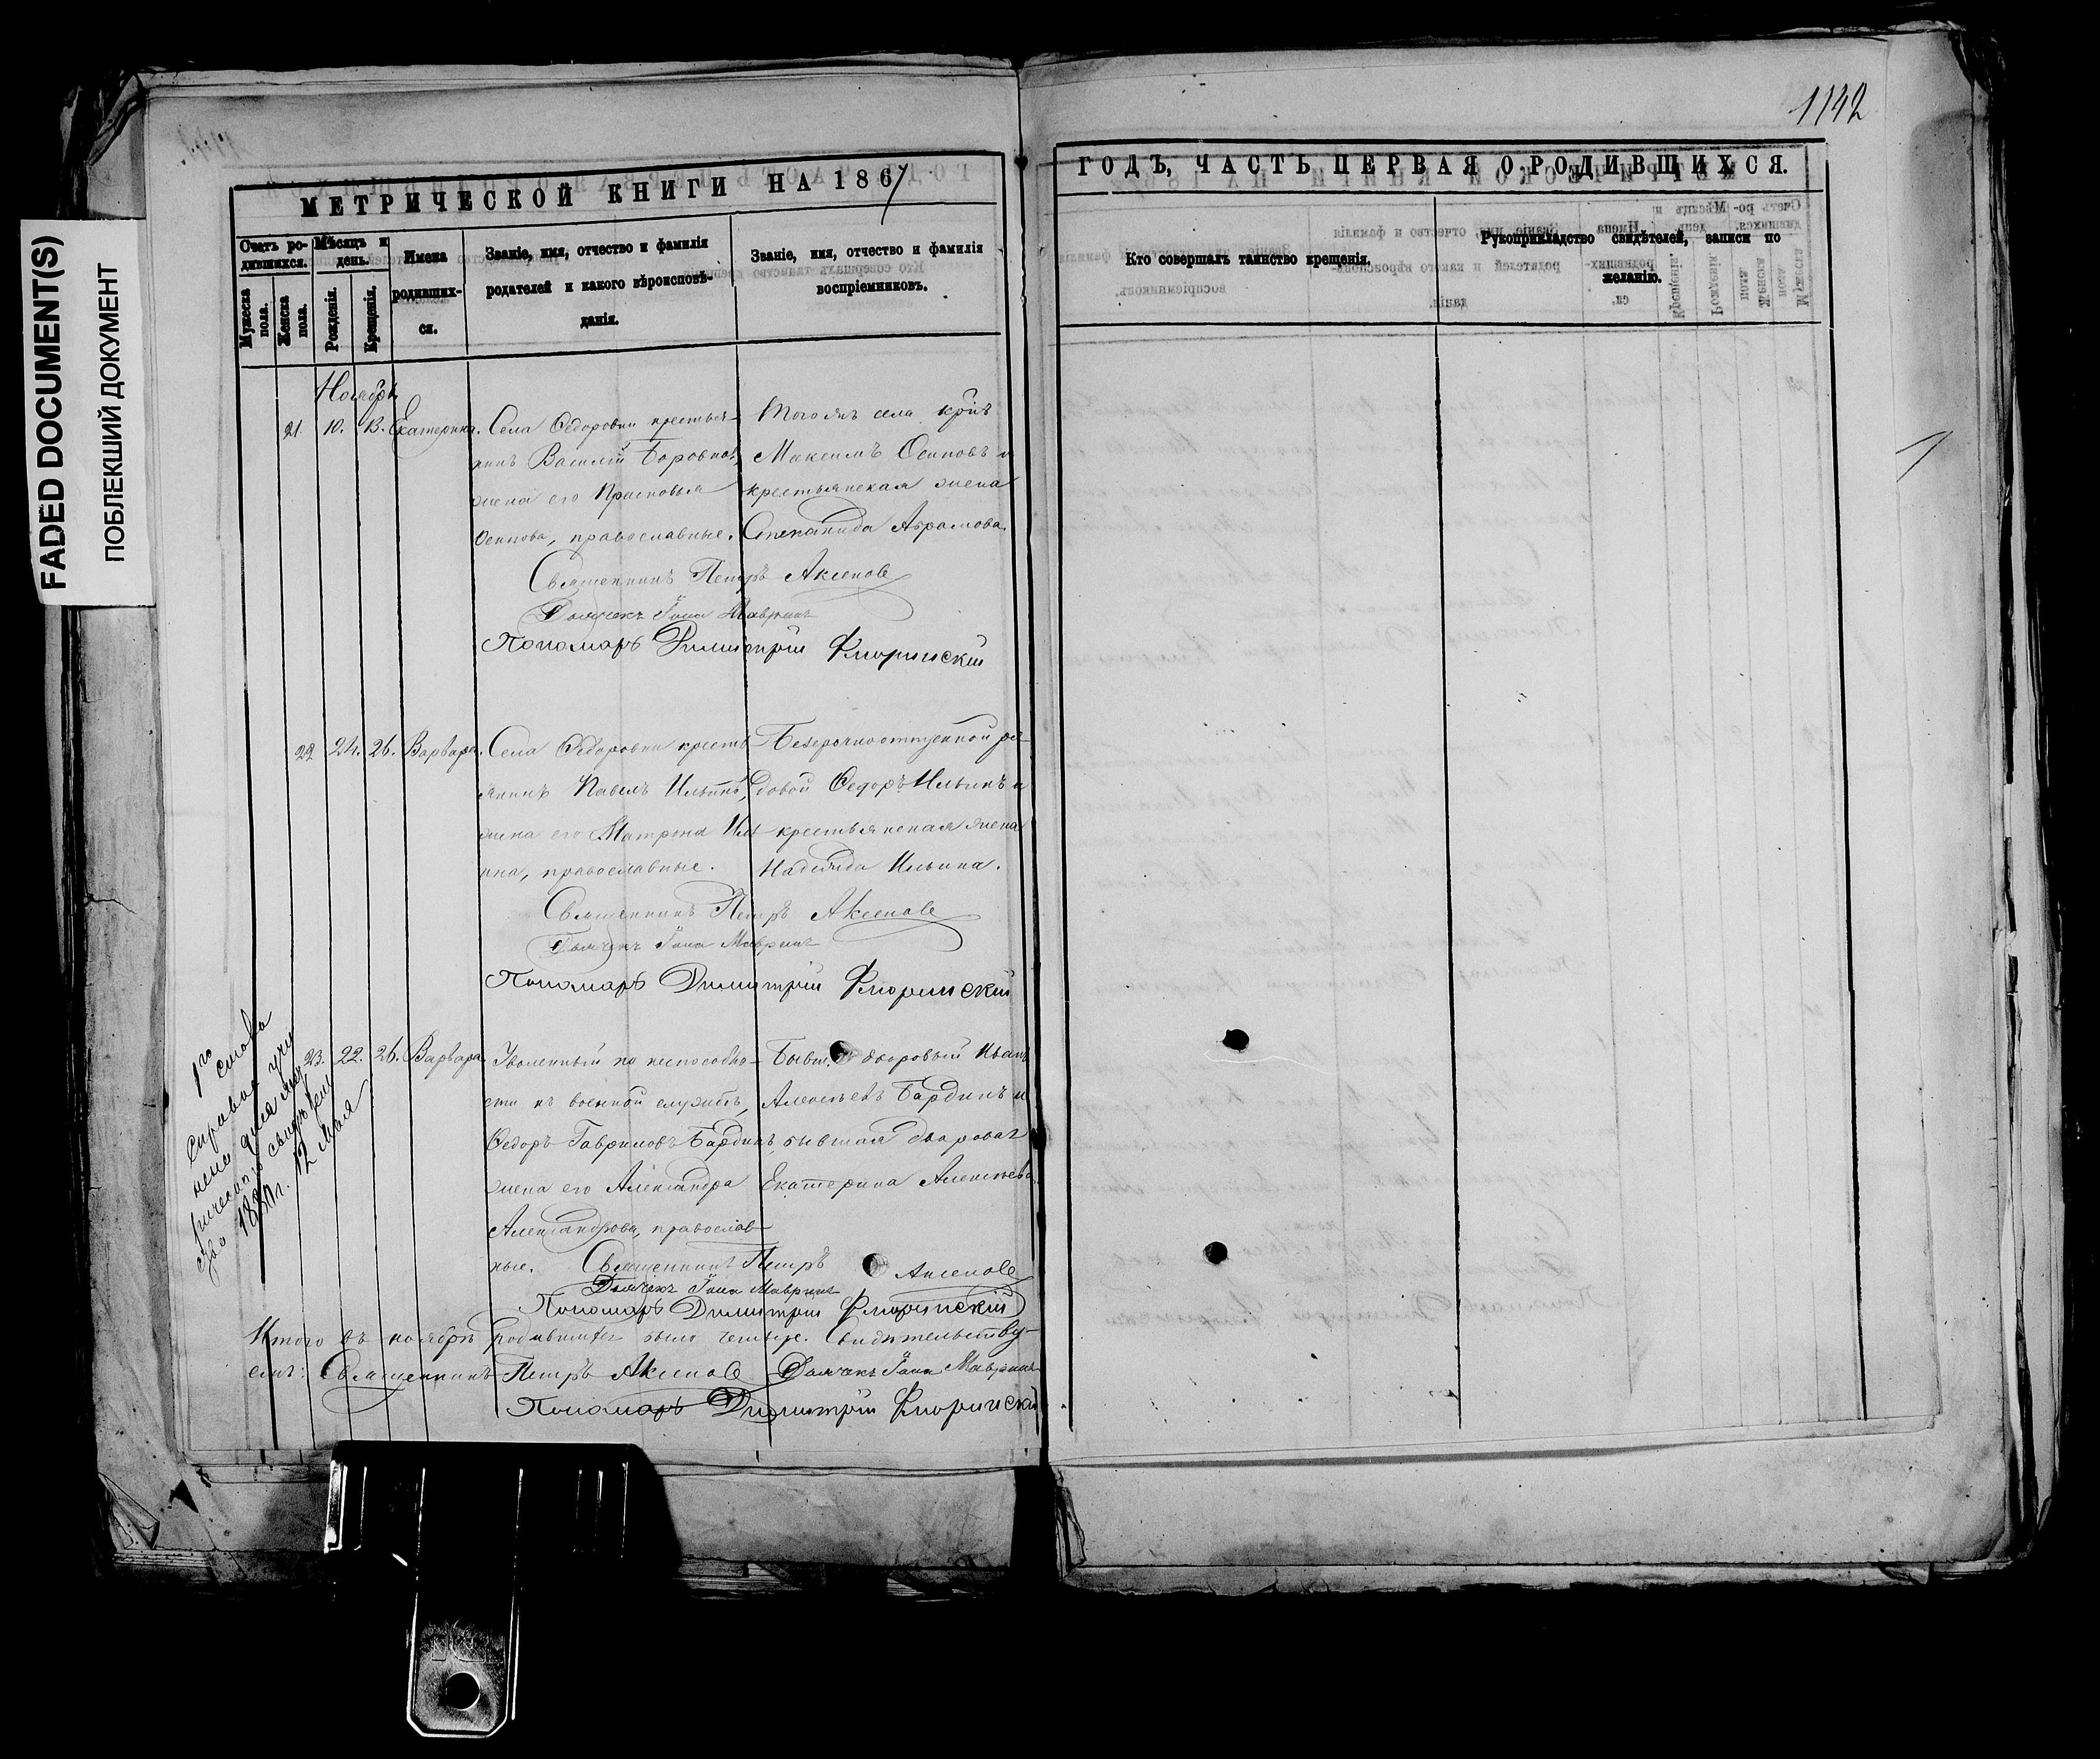 FADED DOCUMENT(S)
ПОБЛЕКШИЙ ДОКУМЕНТ
1142
МЕТРИЧЕСКОЙ КНИГИ НА 1867
ГОДЪ, ЧАСТЬ ПЕРВАЯ О РОДИВШИХСЯ.
Счетъ ро-
дившихся.
Мужеска
пола.
Женска
пола.
Мѣсяцъ и
день.
Рожденія.
Крещенія.
Имена
родивших-
ся.
Званіе, имя, отчество и фамилія
родителей и какого вѣроисповѣ-
данія.
Званіе, имя, отчество и фамилія
воспріемниковъ.
Кто совершалъ таинство крещенія.
Рукоприкладство свидѣтелей, записи по
желанію.
Ноябрь
21. 10. 13. Екатерина.
Села Ѳедоровки крестья-
нинъ Василій Боровковъ,
жена его Прасковья
Осипова, православные.
Тогожъ села
Максимъ Осиповъ и
крестьянская жена
Степанида Абрамова.
Священникъ Петръ Аксеновъ
Дьячекъ Іона Мавринъ
Пономарь Димитрій Флоринскій
22 24. 26. Варвара.
Села Ѳедоровки кресть
янинъ Павелъ Ильинъ,
жена его Матрона Иль
ина, православные.
Безсрочноотпускной ря-
довой Ѳедоръ Ильинъ и
крестьянская жена
Надежда Ильина.
Священникъ Петръ Аксеновъ
Дьячекъ Іона Мавринъ
Пономарь Димитрій Флоринскій
23. 22. 26. Варвара.
Уволенный по неспособно-
сти къ военной службѣ,
Ѳедоръ Гавриловъ Бардинъ,
жена его Александра
Александрова, православ-
ные.
дворовый Иванъ
Алексѣевъ Бардинъ и
бывшая дворовая
Екатерина Алексѣева
Священникъ Петръ Аксеновъ
Дьячекъ Іона Мавринъ
Пономарь Димитрій Флоринскій
справка
12 Мая
Итого въ ноябрѣ родившихся было четыре. Свидѣтельству-
емъ: Священникъ Петръ Аксеновъ Дьячекъ Іона Мавринъ
Пономарь Димитрій Флоринскій